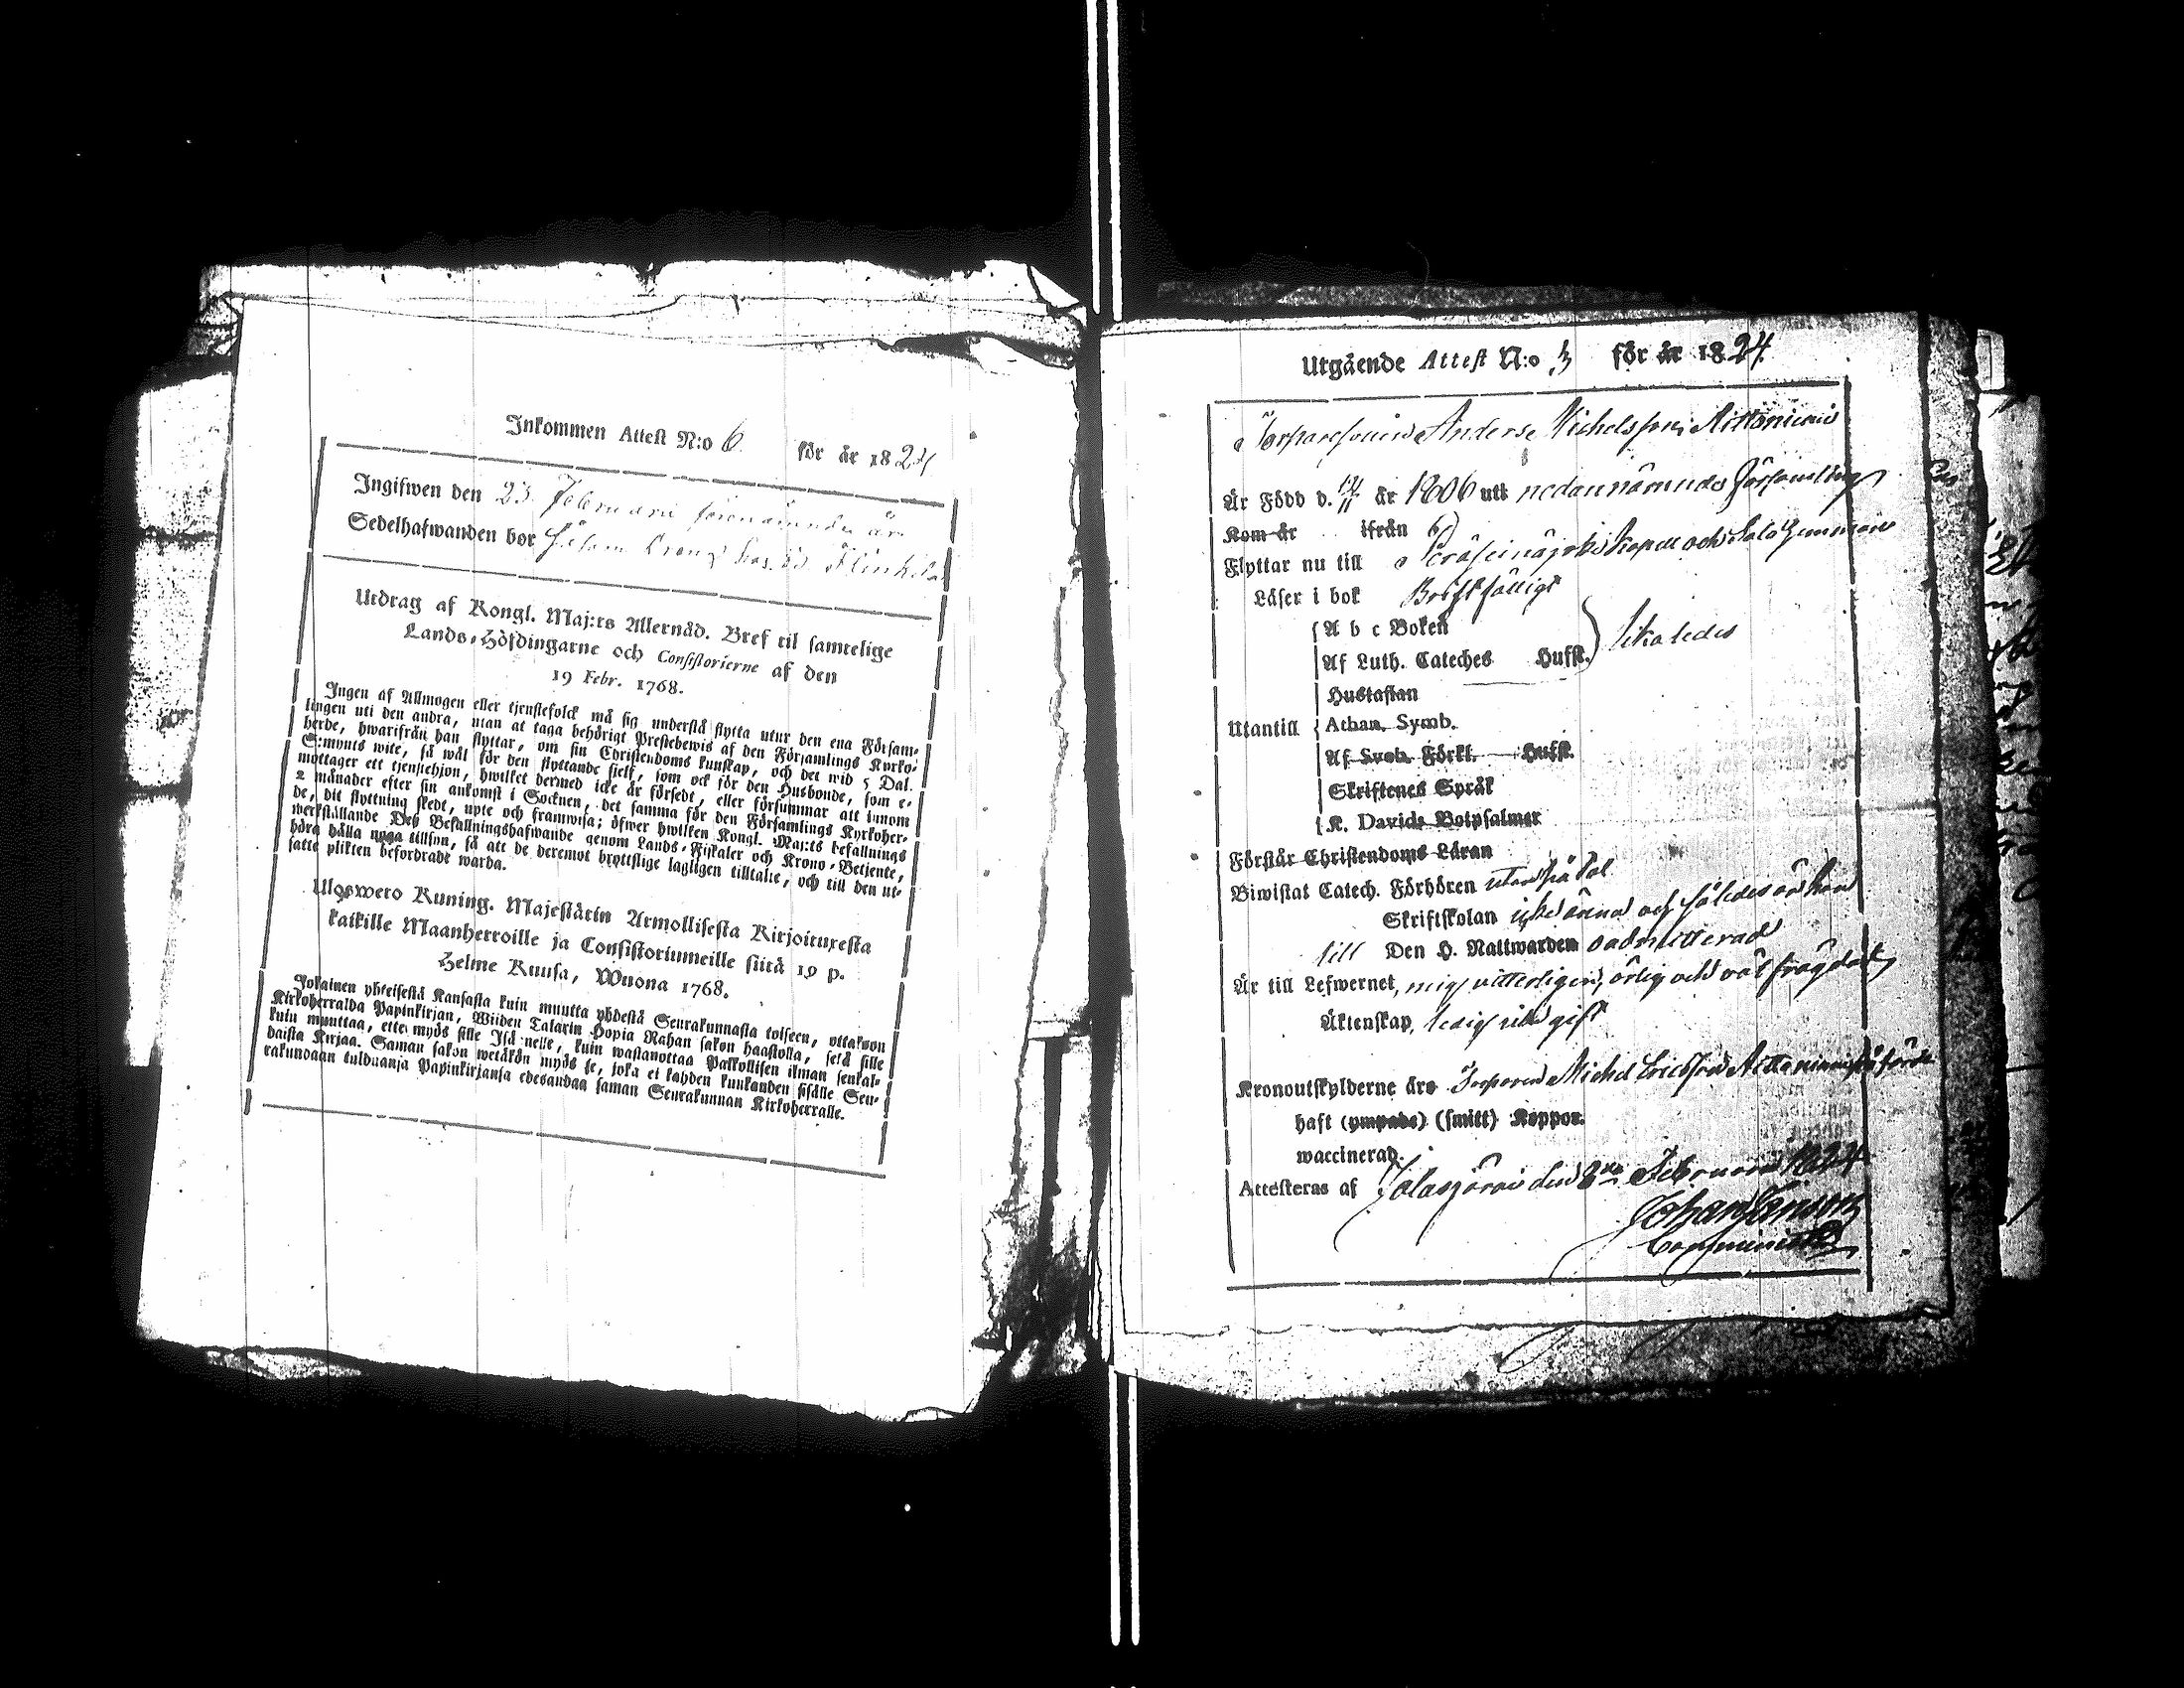 Inkommen Attest N:o 6 för år 1824
Ingifwen den 23 Februari förenämnde år
Sedelhafwanden bor
Utdrag af Kongl. Maj:ts Allernåd. Bref til samtelige
Lands-Höfdingarne och Consistorierne af den
19 Febr. 1768.
Ingen af Allmogen eller tjenstefolck må sig understå flytta utur den ena Försam-
lingen uti den andra, utan at taga behörigt Prestebewis af den Församlings Kyrko-
herde, hwarifrån han flyttar, om sin Christendoms kunskap, och det wid 5 Dal.
S:mynts wite, så wäl för den flyttande sielf, som ock för den Husbonde, som e-
mottager ett tjenstehjon, hwilket dermed icke är försedt, eller försummar att innom
2 månader efter sin ankomst i Socknen, det samma för den Församlings Kyrkoher-
de, dit flyttning skedt, upte och framwisa; öfwer hwilken Kongl. Maj:ts befallnings
werkställande Des Befallningshafwande genom Lands-Fiskaler och Krono-Betjente,
böra hålla noga tillsyn, så att de deremot bryttslige lagligen tilltalte, och till den ut-
satte plikten befordrade warda.
Ulgswero Kuning. Majestätin Armollisesta Kirjoituxesta
kaikille Maanherroille ja Consistoriumeille siitä 19 p.
Helme Kuusa, Wuona 1768.
Jokainen yhteisestä Kansasta kuin muutta yhdestä Seurakunnasta toiseen, ottakoon
Kirkoherralda Papinkirjan, Wiiden Talarin Hopia Rahan sakon haastolla, setä sille
kuin muuttaa, ette myös sille Isännelle, kuin wastanottaa Palkollisen ilman senkal-
daista Kirjaa. Saman sakon wetäkön myös se, joka ei kahden kuukauden sisälle Seu-
rakundaan tulduanja Papinkirjansa edesandaa saman Seurakunnan Kirkoherralle.
Utgående Attest N:o 3 för år 1824
Torparesonen Anders Michelsson Aittoniemi
Är Född d. 14/11 år 1806 utt nedannämnde Församling
Kom år ifrån
Flyttar nu till Peräseinäjoki Kapell och
Läser i bok Bristfälligt
A b c Boken
Af Luth. Cateches Hufst. } likaledes
Hustaflan
Utantill Athan. Symb.
Af Sveb. Förkl. Hufst.
Skriftenes Språk
K. Davids Botpsalmer
Förstår Christendoms Läran
Biwistat Catech. Förhören utan
Skriftskolan icke ännu och således är han
till Den H. Nattwarden oadmitterad
Är till Lefwernet, mig vitterligen, ärlig och väl frägdad
Äktenskap, ledig till gift
Kronoutskylderne äro Torparen Michel Ericsson Aittoniemi påförde
haft (ympade) (smitt) Koppor.
waccinerad.
Attesteras af Jalasjärvi den 8de Februari 1824
Johan
Comminister